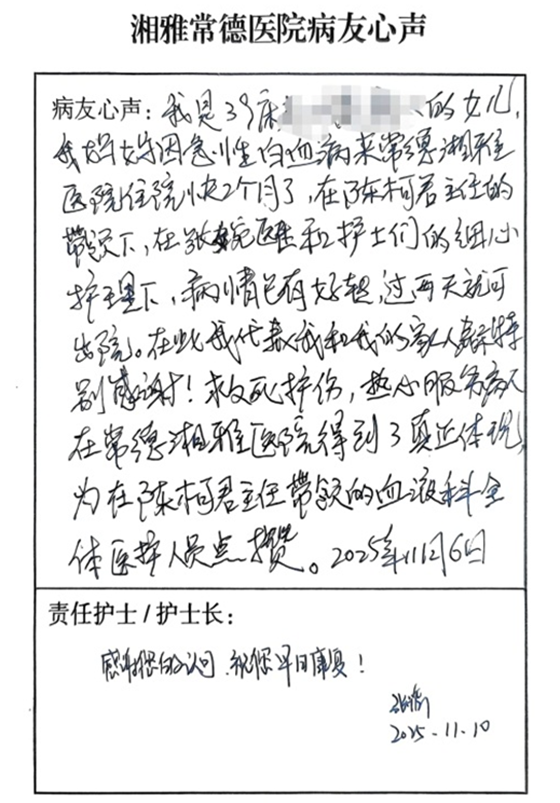 湘雅常德医院病友心声
病友心声：我是39床 的女儿，
我妈妈因急性白血病来常德湘雅
医院住院快2个月了，在陈柯君主任的
带领下，在张婉医生和护士们的细心
护理下，病情已有好转，过两天就可
出院。在此我代表我和我的家人表示特
别感谢！救死护伤，热心服务病人
在常德湘雅医院得到了真正体现，
为在陈柯君主任带领的血液科全
体医护人员点赞。2025年11月6日
责任护士/护士长：
感谢您的认可，祝您早日康复！
2025.11.10